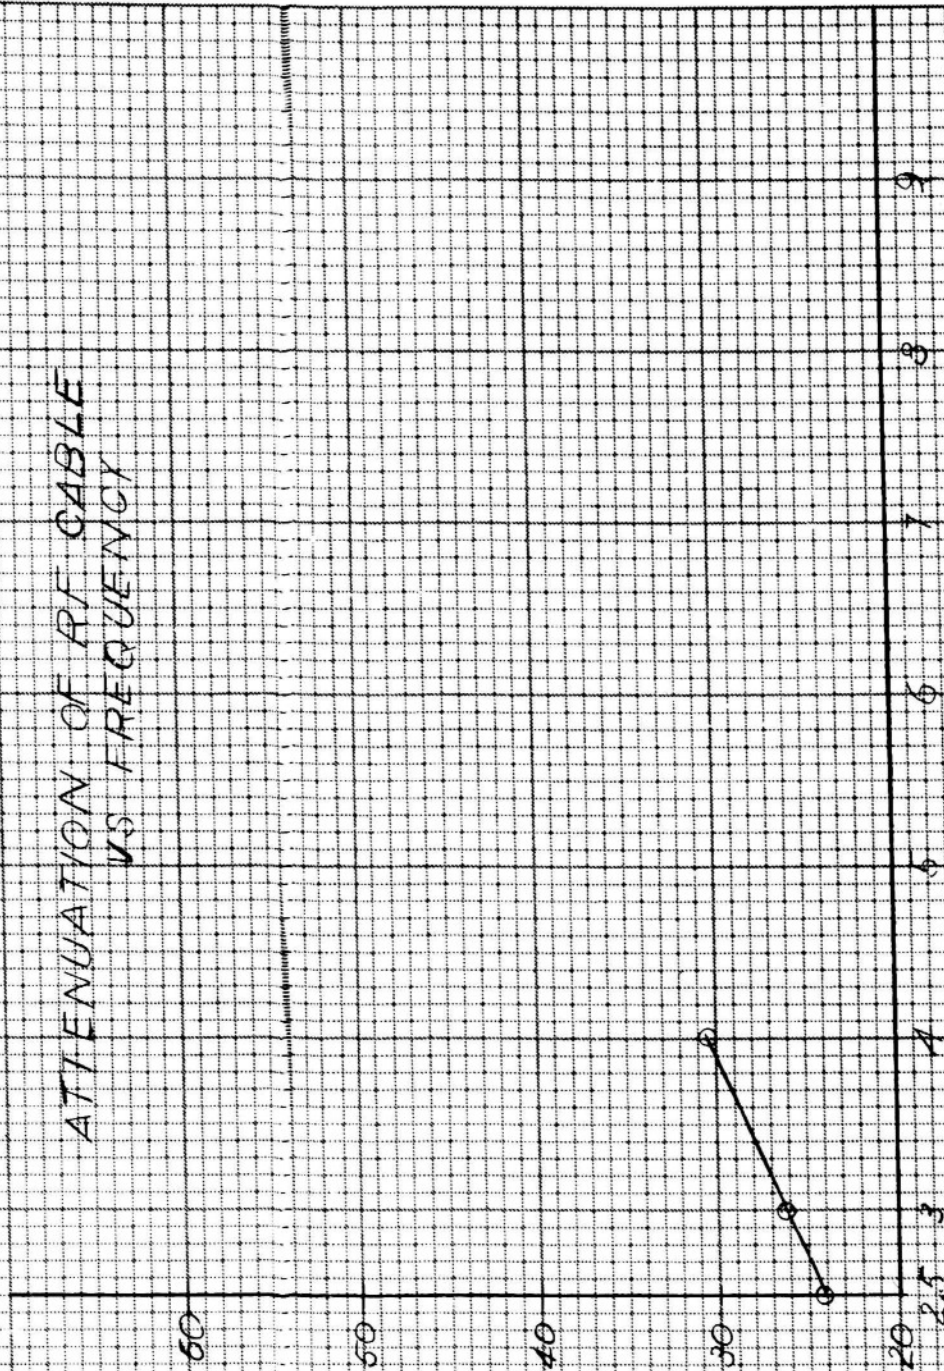 ATTENUATION OF RF CABLE
VS FREQUENCY
60
50
40
30
20
2.5 3 4 5 6 7 8 9